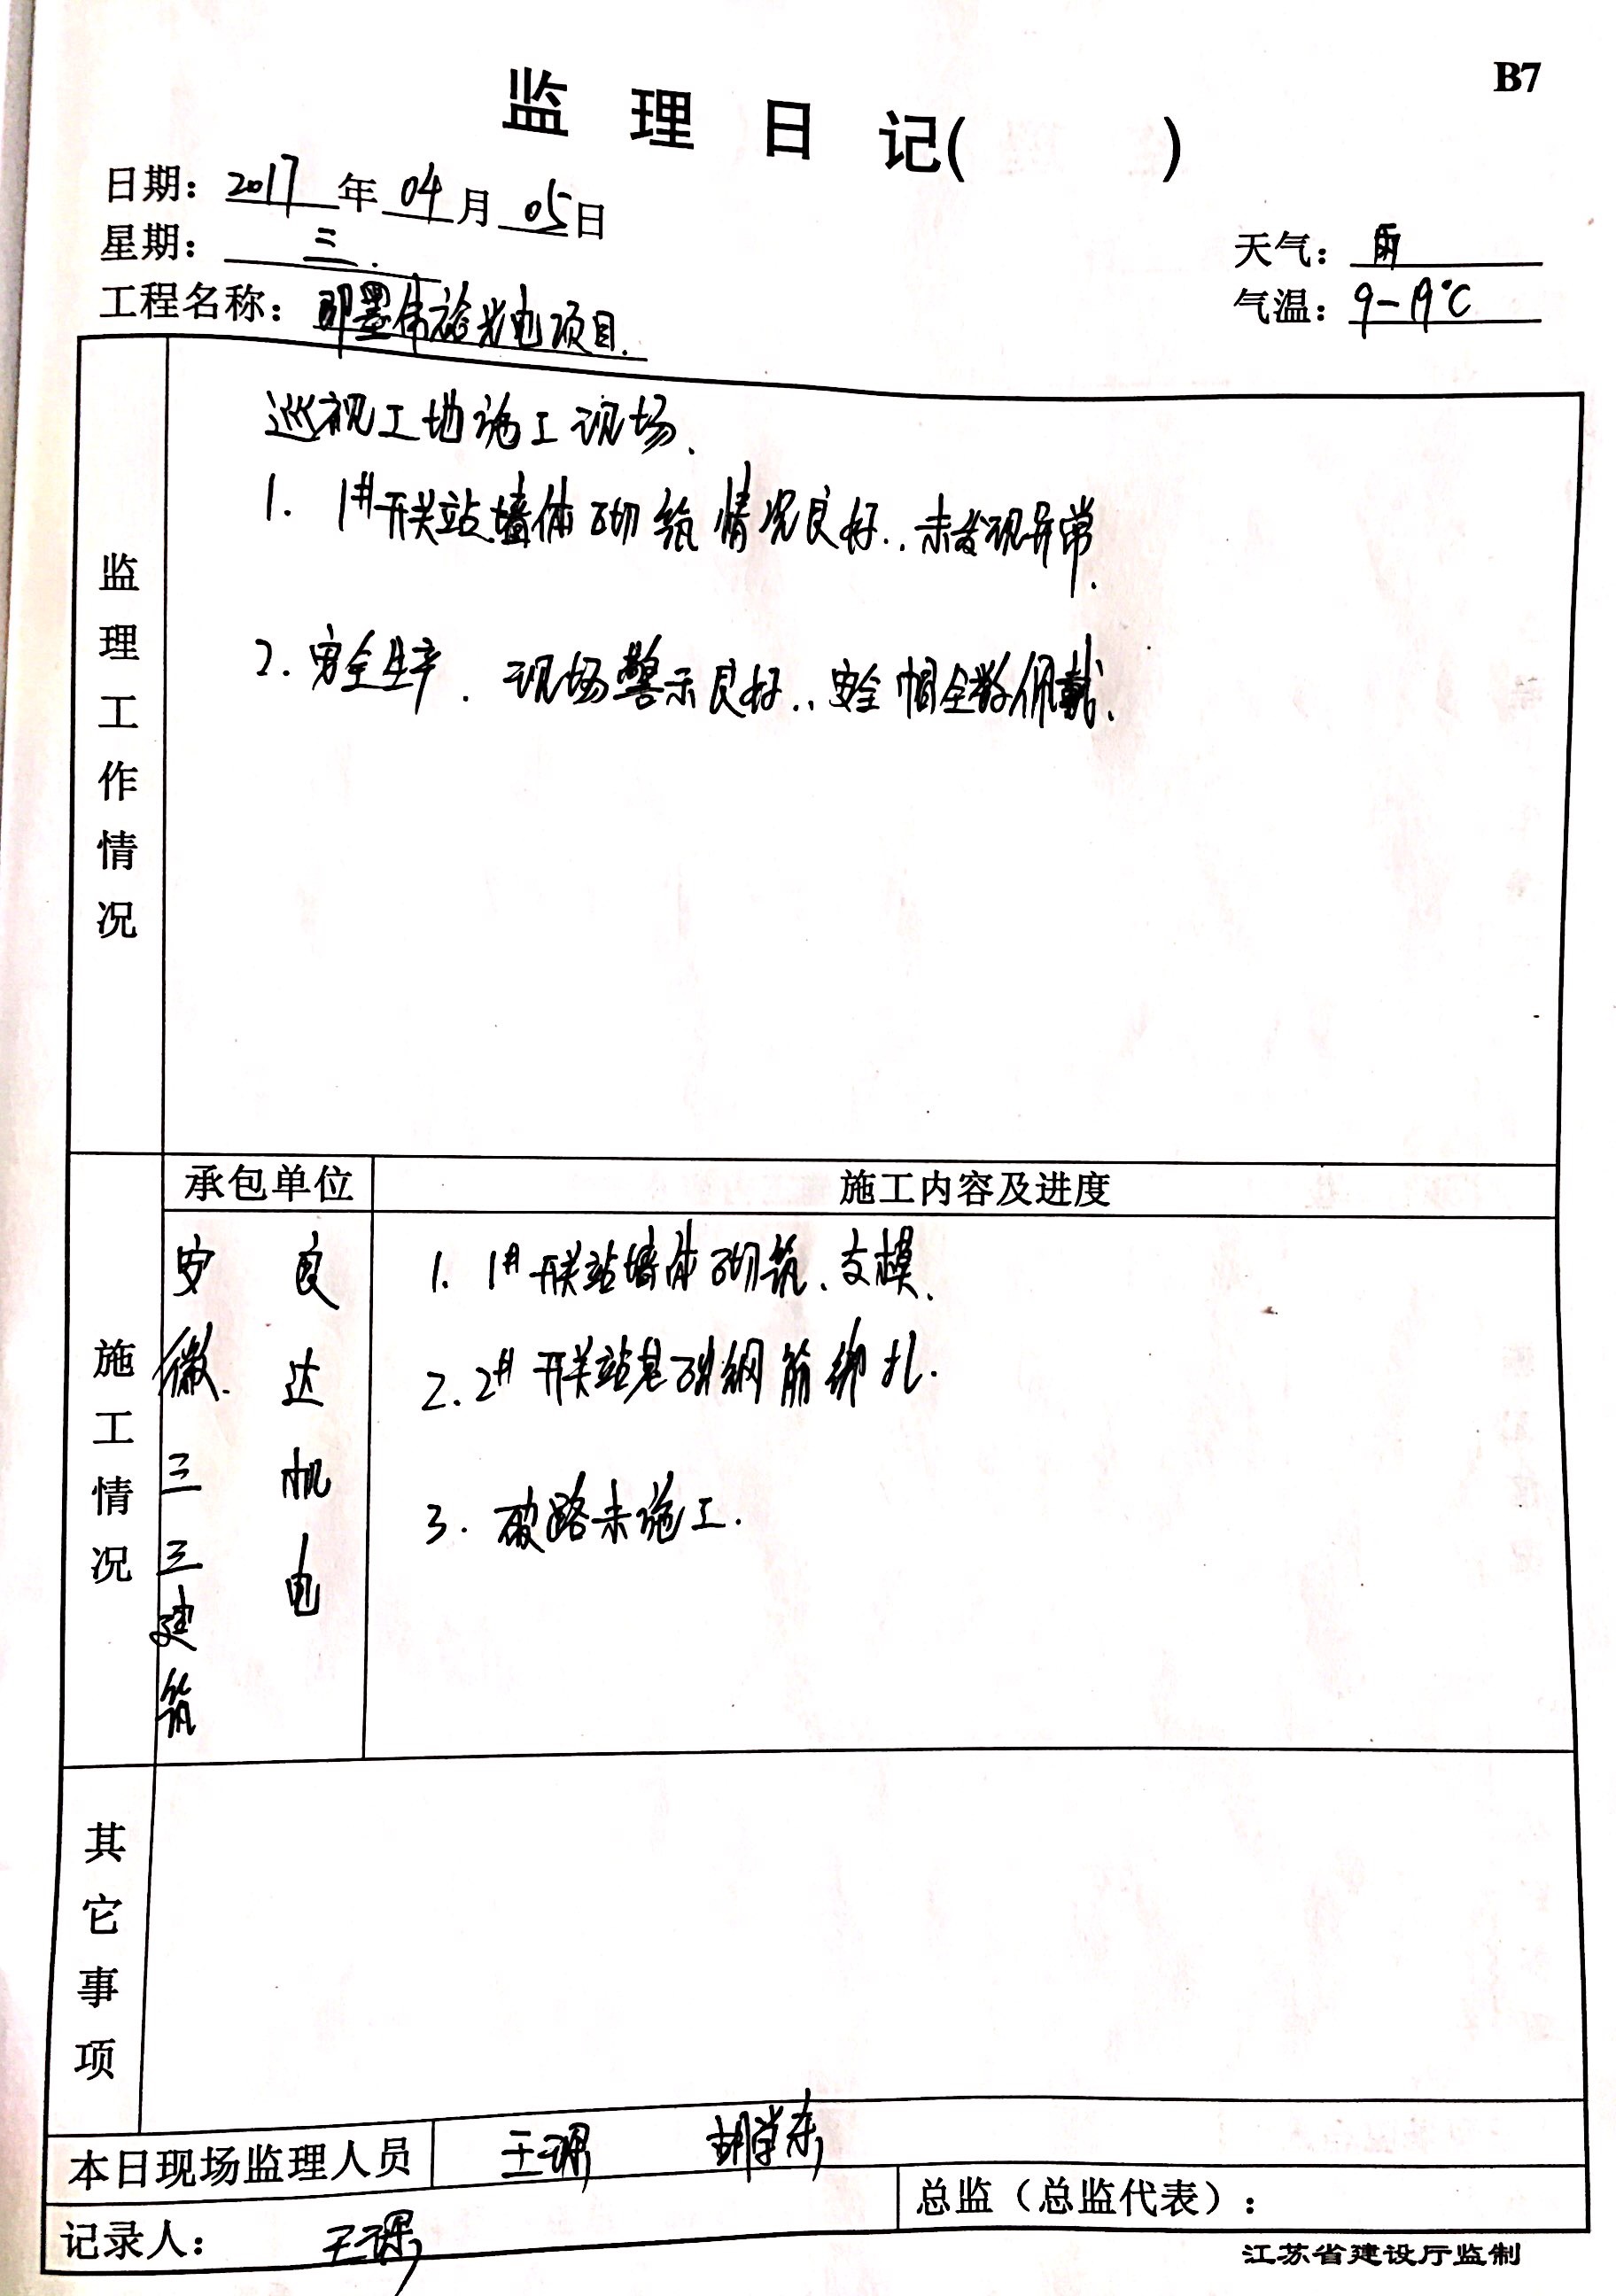 B7
监理日记(      )
日期：2017年04月05日
星期：三.
天气：雨
工程名称：即墨 光电项目.
气温：9-19℃
监理工作情况
巡视工地施工现场.
1. 1#开关站墙体砌筑情况良好..未发现异常.
2. 安全生产. 现场警示良好..安全帽全数佩戴.
施工情况
承包单位
施工内容及进度
安徽三三建筑
良达机电
1. 1#开关站墙体砌筑、支模.
2. 2#开关站基础钢筋绑扎.
3. 破路未施工.
其它事项
本日现场监理人员 王 胡学东
记录人： 王
总监（总监代表）：
江苏省建设厅监制